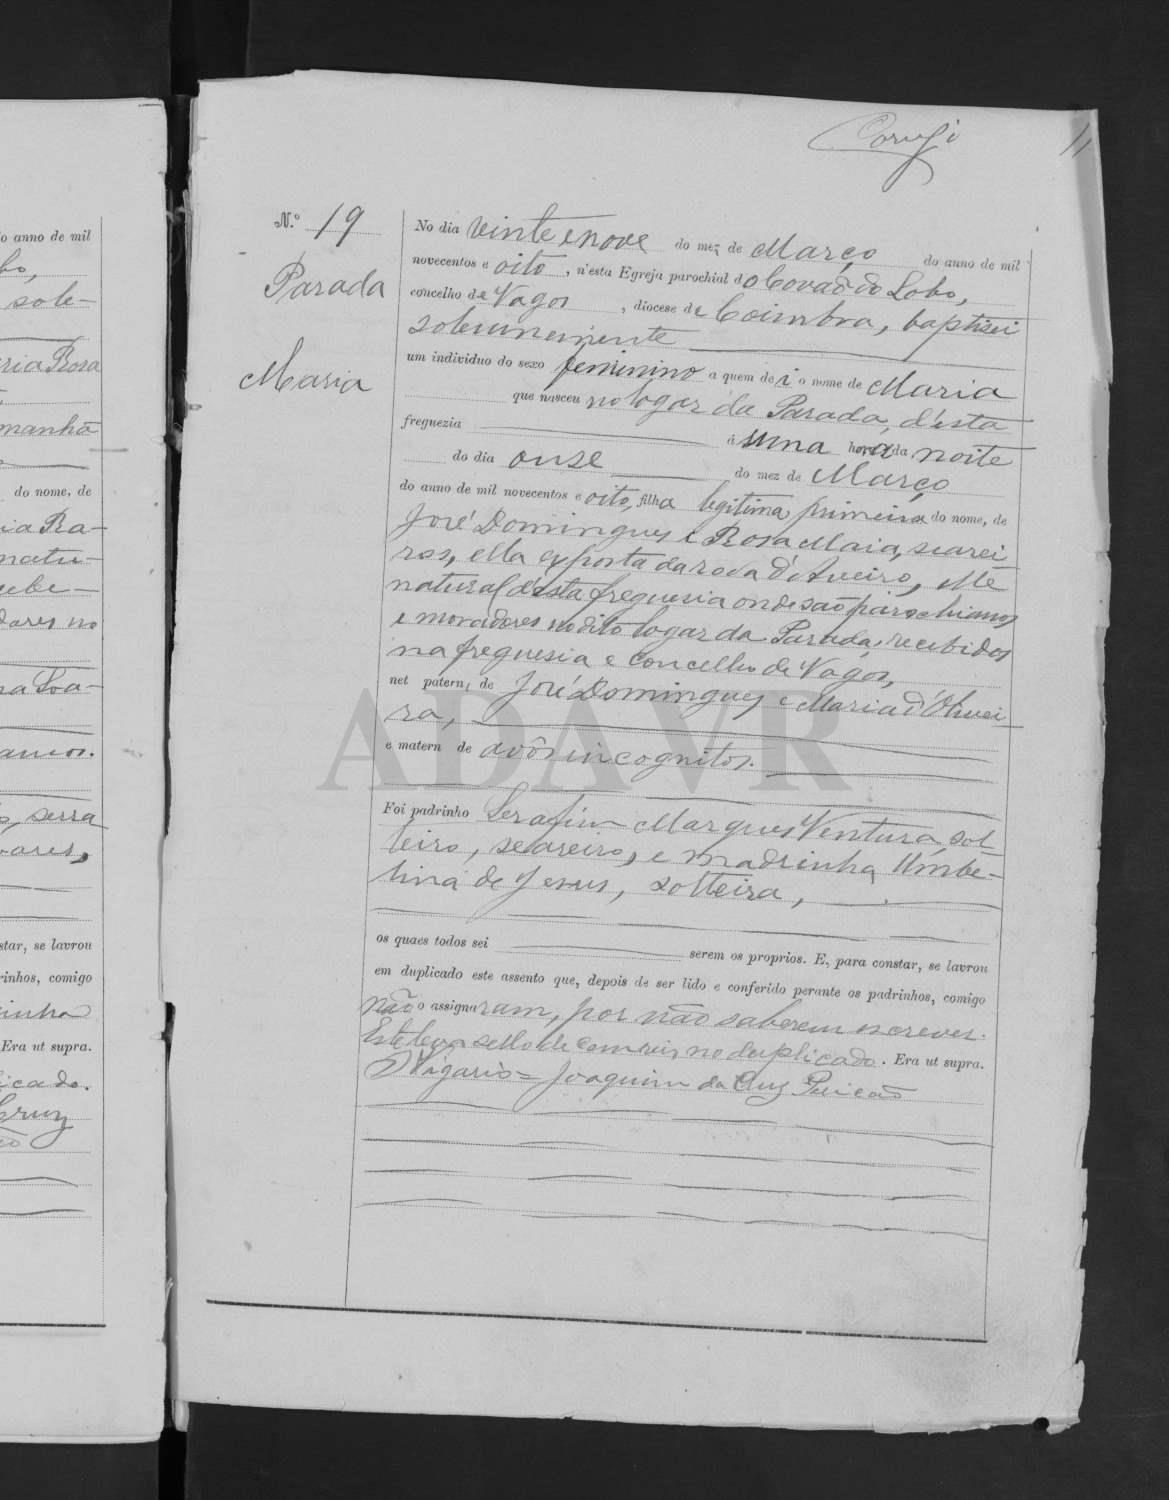 o anno de mil
bo,
sole-
ria Rosa
manhã
do nome, de
ia Ra-
natu-
cebe-
dores no
na Loa-
anos.
o, serra
vares,
star, se lavrou
rinhos, comigo
inha
Era ut supra.
icado.
Cruz
ão
11
N.º 19
Parada
Maria
No dia vinte e nove do mez de Março do anno de mil
novecentos e oito, n'esta Egreja parochial do Covão do Lobo,
concelho de Vagos, diocese de Coimbra, baptisei
solemnemente
um individuo do sexo feminino a quem dei o nome de Maria
que nasceu no logar da Parada, d'esta
freguezia á uma hora da noite
do dia onze do mez de Março
do anno de mil novecentos e oito, filha legitima primeira do nome, de
José Domingues e Rosa Maia, searei
ros, ella exposta da roda d'Aveiro, elle
natural d'esta freguesia onde são parochianos
e moradores no dito logar da Parada, recebidos
na freguesia e concelho de Vagos,
net patern de José Domingues e Maria d'Olivei
ra,
e matern de avôs incognitos.
Foi padrinho Serafim Marques Ventura, sol-
teiro, seareiro, e madrinha Umbe-
lina de Jesus, solteira,
os quaes todos sei serem os proprios. E, para constar, se lavrou
em duplicado este assento que, depois de ser lido e conferido perante os padrinhos, comigo
não o assignaram, por não saberem escrever.
Este leva sello de cem reis no duplicado. Era ut supra.
O Vigario = Joaquim da Cruz
ADAVR